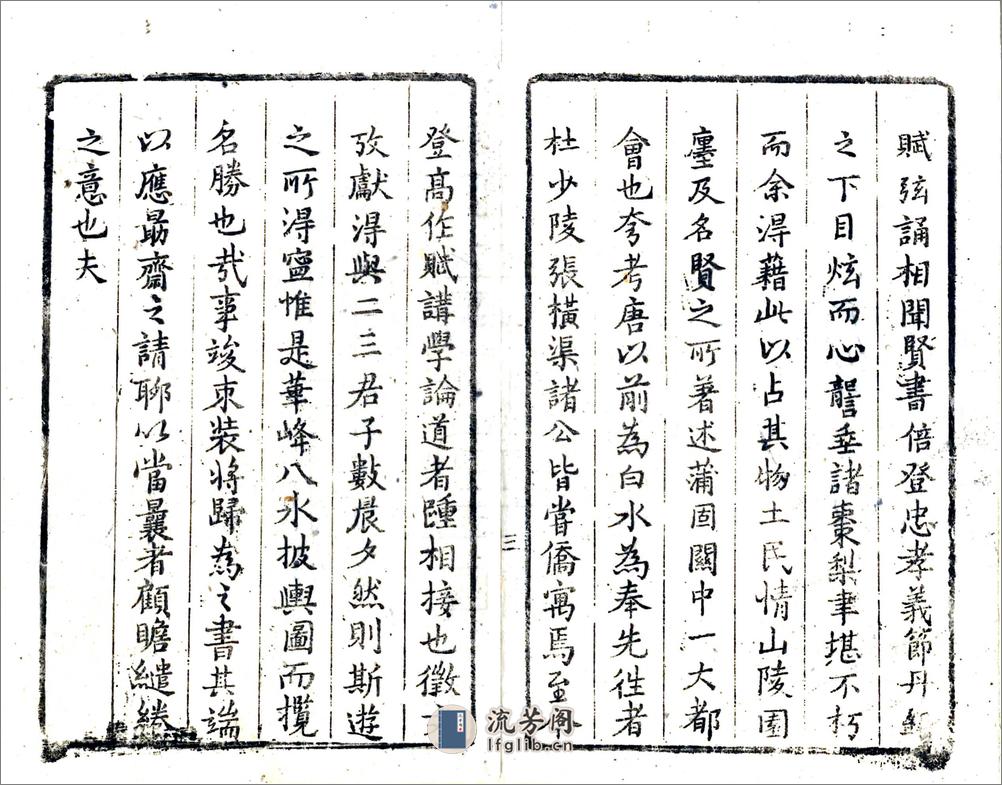 賦弦誦相聞賢書倍登忠孝義節丹
之下目炫而心讋垂諸棗梨聿堪不朽
而余淂藉此以占其物土民情山陵園
廛及名賢之所著述蒲固關中一大都
會也夸考唐以前為白水為奉先徃者
杜少陵張橫渠諸公皆甞僑寓焉至
登高作賦講學論道者踵相接也徵
攷獻淂與二三君子數晨夕然則斯遊
之所淂寍惟是華峰八水披輿圖而攬
名勝也㢤事竣束裝將歸為之書其端
以應勗齋之請聊以當曩者顧瞻繾綣
之意也夫
三
流芳阁
lfglib.cn